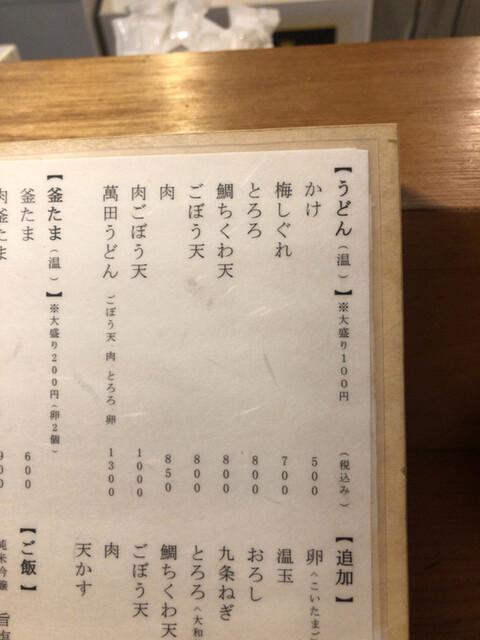 【うどん(温)】※大盛り100円 (税込み)
かけ 500
梅しぐれ 700
とろろ 800
鯛ちくわ天 800
ごぼう天 800
肉 850
肉ごぼう天 1000
萬田うどん ごぼう天 肉 とろろ 卵 1300
【釜たま(温)】※大盛り200円(卵2個)
釜たま 600
肉釜たま 900
【追加】
卵(こいたまご
温玉
おろし
九条ねぎ
とろろ(大和
鯛ちくわ天
ごぼう天
肉
天かす
【ご飯】
純米吟醸